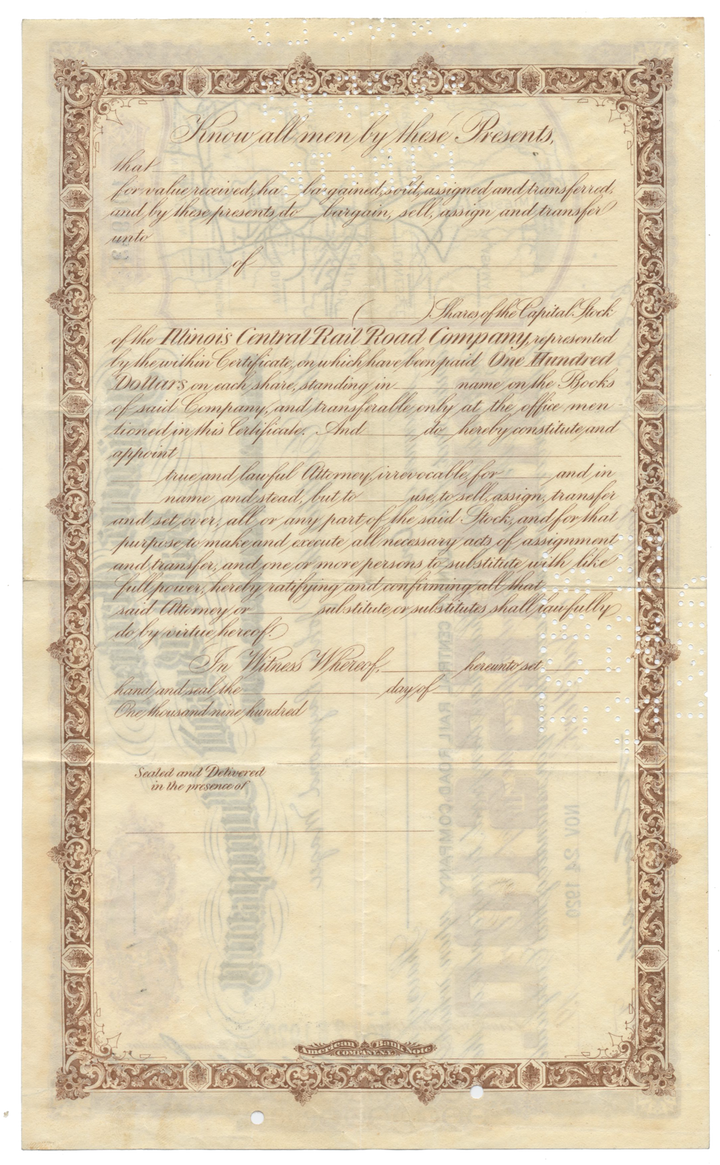 Know all men by these Presents,
that
for value received, ha bargained, sold, assigned and transferred,
and by these presents do bargain, sell, assign and transfer
unto
of
( ) Shares of the Capital Stock
of the Illinois Central Rail Road Company, represented
by the within Certificate, on which have been paid One Hundred
Dollars on each share, standing in name on the Books
of said Company, and transferable only at the office men-
tioned in this Certificate. And do hereby constitute and
appoint
true and lawful Attorney, irrevocable, for and in
name and stead, but to use, to sell, assign, transfer
and set over, all or any part of the said Stock, and for that
purpose to make and execute all necessary acts of assignment
and transfer, and one or more persons to substitute with like
full power, hereby ratifying and confirming all that
said Attorney or substitute or substitutes shall lawfully
do by virtue hereof.
In Witness Whereof, hereunto set
hand and seal the day of
One thousand nine hundred
Sealed and Delivered
in the presence of
CENTRAL RAIL ROAD COMPANY
NOV 24 1920
American Bank Note
COMPANY, N.Y.